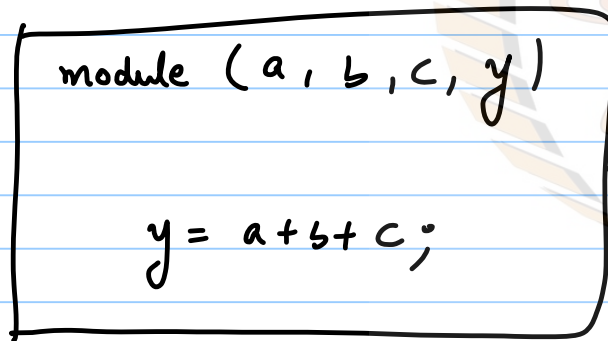 module (a, b, c, y)
y = a+b+c;